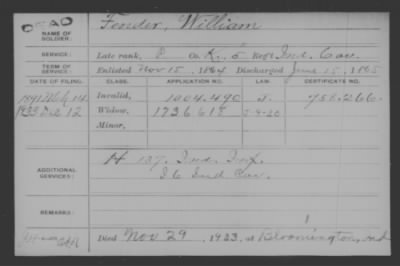 DEAD
NAME OF SOLDIER: Fender, William
SERVICE: Late rank, P Co. K, 5 Reg't Ind. Cav.
TERM OF SERVICE: Enlisted Nov 15, 1864 Discharged June 15, 1865
DATE OF FILING. CLASS. APPLICATION NO. LAW. CERTIFICATE NO.
1891 Mch 14 Invalid, 1004.490 758.266
1933 Dec 12 Widow, 1736618
Minor,
ADDITIONAL SERVICES: H 137. Ind. Inf.
I 6 Ind Cav.
REMARKS:
Died Nov 29, 1933, at Bloomington, Ind